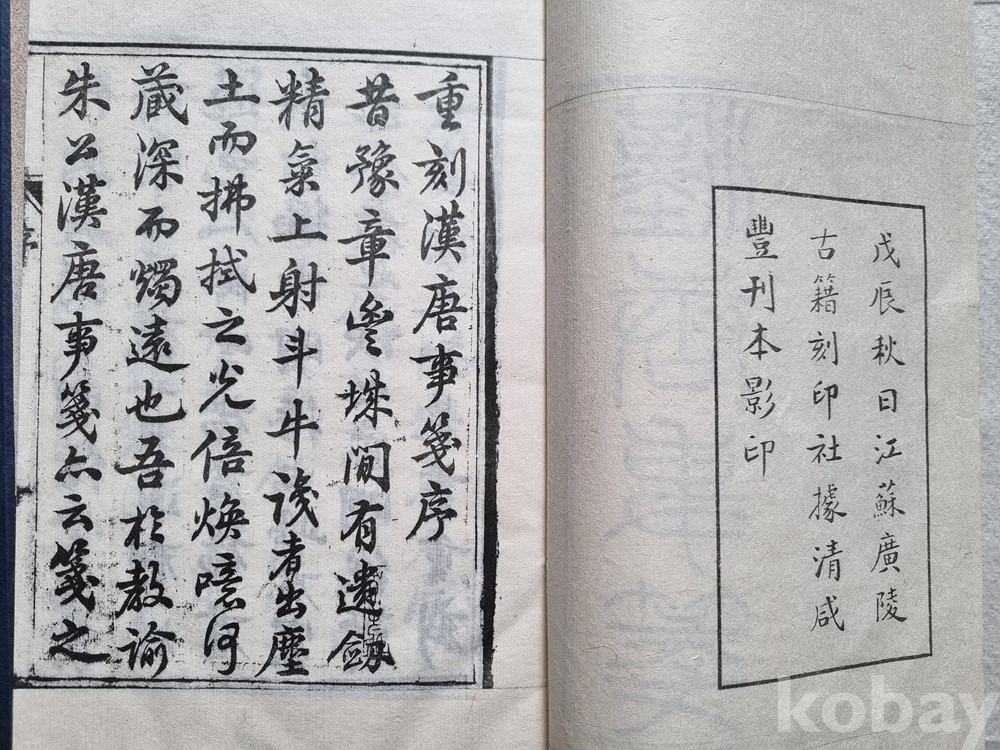 戊辰秋日江蘇廣陵
古籍刻印社據清咸
豐刊本影印
重刻漢唐事箋序
昔豫章豐城間有遺劔
精氣上射斗牛識者出塵
土而拂拭之光倍煥噫何
藏深而燭遠也吾於教諭
朱公漢唐事箋亦云箋之
序
kobay